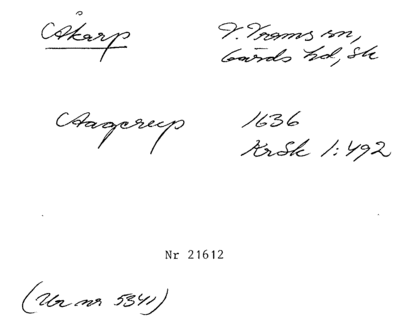 Åkarp V. Vrams sn,
Gärds hd, Sk
Aagerup 1636
KrSk 1:492
Nr 21612
(Ur nr 5341)